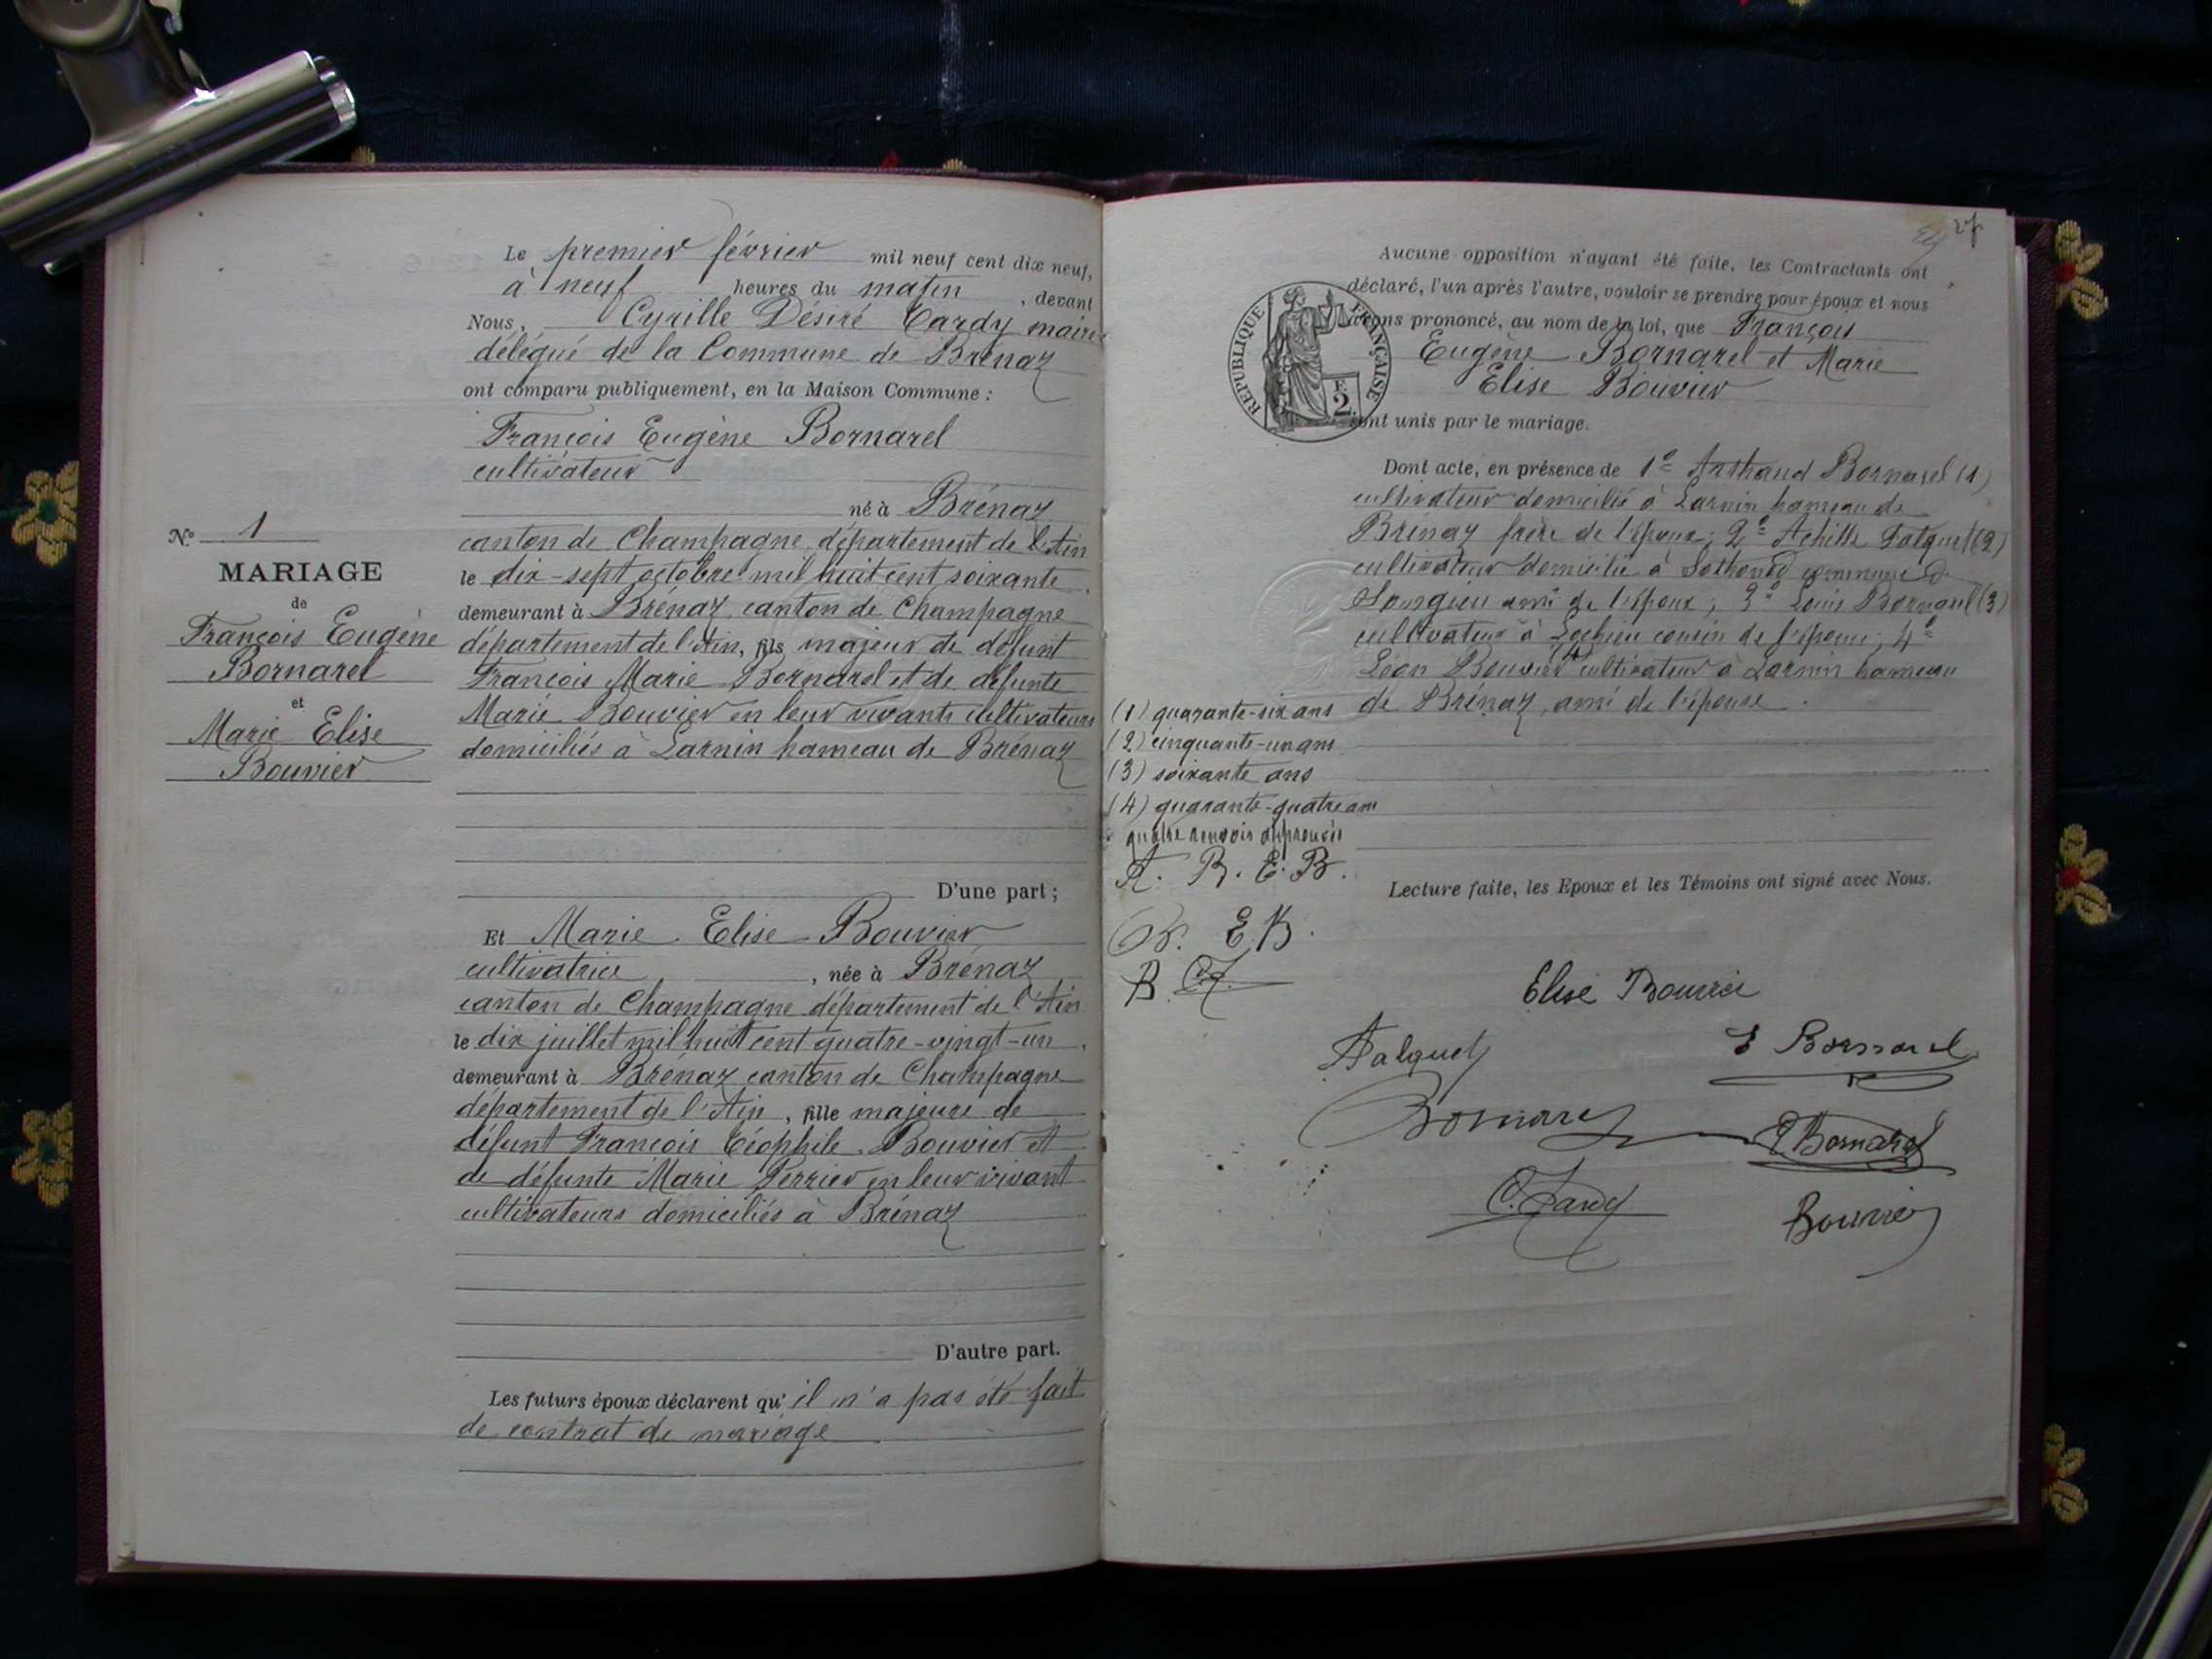 Le premier février mil neuf cent dix neuf,
à neuf heures du matin, devant
Nous, Cyrille Désiré Tardy maire
délégué de la Commune de Brénaz
ont comparu publiquement, en la Maison Commune :
François Eugène Bornarel
cultivateur
né à Brénaz
canton de Champagne, département de l'Ain
le dix-sept octobre mil huit cent soixante,
demeurant à Brénaz canton de Champagne
département de l'Ain, fils majeur de défunt
François Marie Bornarel et de défunte
Marie Bouvier en leur vivants cultivateurs
domiciliés à Larnin hameau de Brénaz
D'une part ;
N° 1
MARIAGE
de
François Eugène
Bornarel
et
Marie Elise
Bouvier
Et Marie Elise Bouvier
cultivatrice, née à Brénaz
canton de Champagne département de l'Ain
le dix juillet mil huit cent quatre-vingt-un,
demeurant à Brénaz canton de Champagne
département de l'Ain, fille majeure de
défunt François Téophile Bouvier et
de défunte Marie Perrier en leur vivant
cultivateurs domiciliés à Brénaz
D'autre part.
Les futurs époux déclarent qu'il n'a pas été fait
de contrat de mariage
27
Aucune opposition n'ayant été faite, les Contractants ont
déclaré, l'un après l'autre, vouloir se prendre pour époux et nous
avons prononcé, au nom de la loi, que François
Eugène Bornarel et Marie
Elise Bouvier
sont unis par le mariage.
REPUBLIQUE FRANÇAISE
F.
2.
Dont acte, en présence de 1° Arthaud Bornarel (1)
cultivateur domicilié à Larnin hameau de
Brénaz frère de l'époux; 2° Achille Falquet (2)
cultivateur domicilié à Sothonod commune de
Songieu ami de l'époux; 3° Louis Bornarel (3)
cultivateur à Lochieu cousin de l'époux; 4°
Léon Bouvier (4) cultivateur à Larnin hameau
de Brénaz, ami de l'épouse.
(1) quarante-six ans
(2) cinquante-un ans
(3) soixante ans
(4) quarante-quatre ans
quatre renvois approuvés
A. B. E. B.
E. B.
B. C.T.
Lecture faite, les Epoux et les Témoins ont signé avec Nous.
Elise Bouvier
AFalquet
E Bornarel
Bornarel
Bornarel
C. Tardy
Bouvier